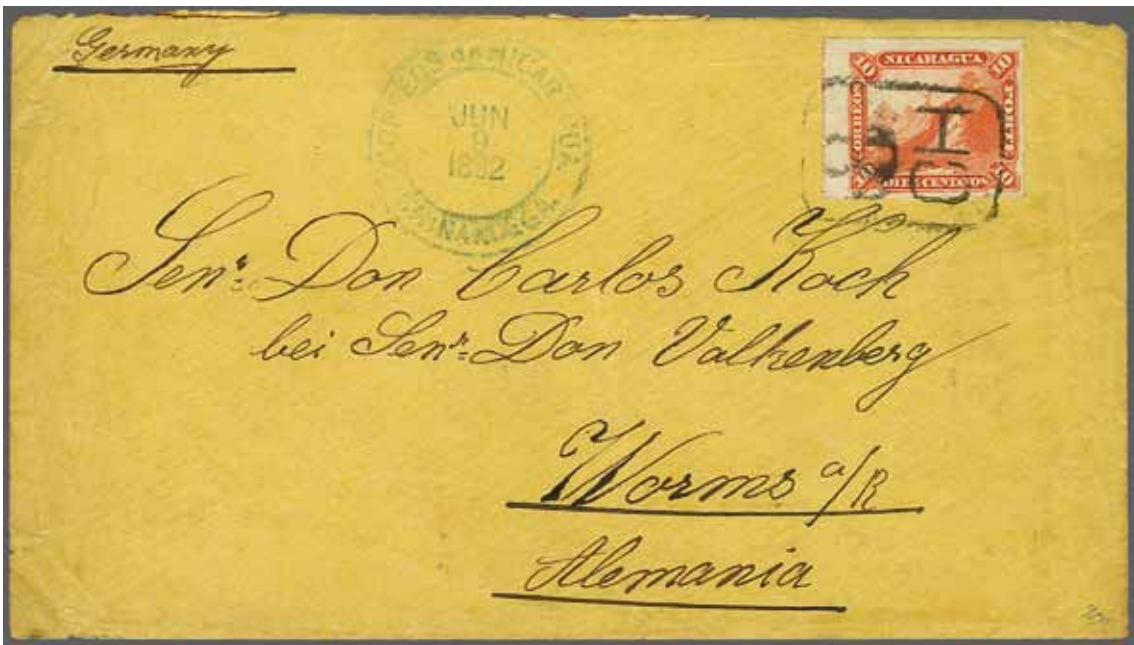 Germany
CORREOS DE NICARAGUA
JUN
9
1882
CHINANDEGA
10 NICARAGUA 10
CORREOS
PORTE
10 DIEZ CENTAVOS 10
Senr. Don Carlos Koch
bei Senr. Don Valkenberg
Worms a/R
Alemania